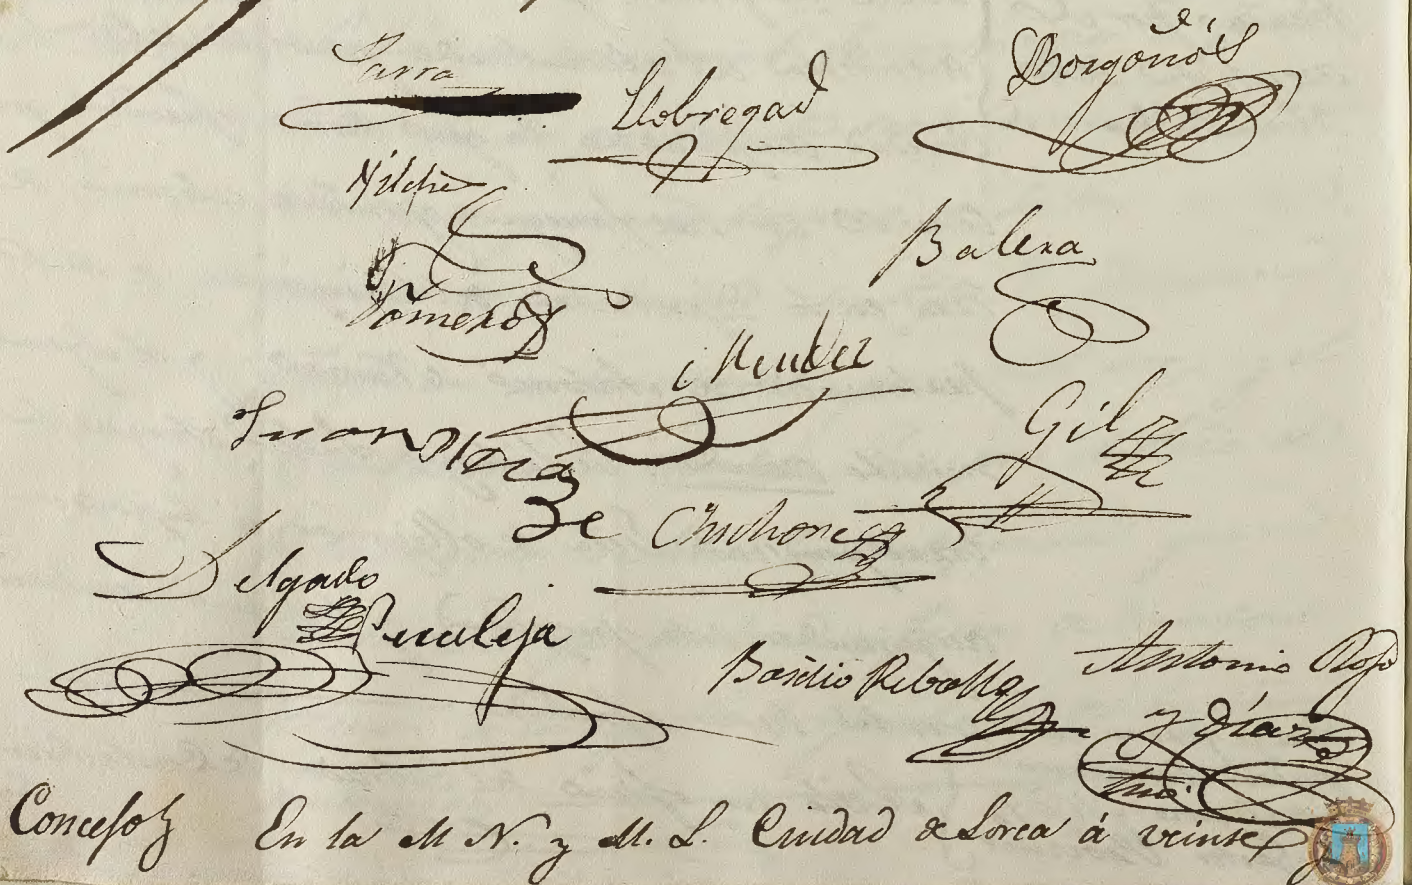 Parra
Llobregad
Borgoños
Vilches
Balera
Romero
Mendez
Gil
Juan Mora
de Chichones
Delgado
Peraleja
Basilio Rebolla
Antonio Rojo
y Diaz
Srio.
Concejo En la M. N. y M. L. Ciudad de Lorca á veinte